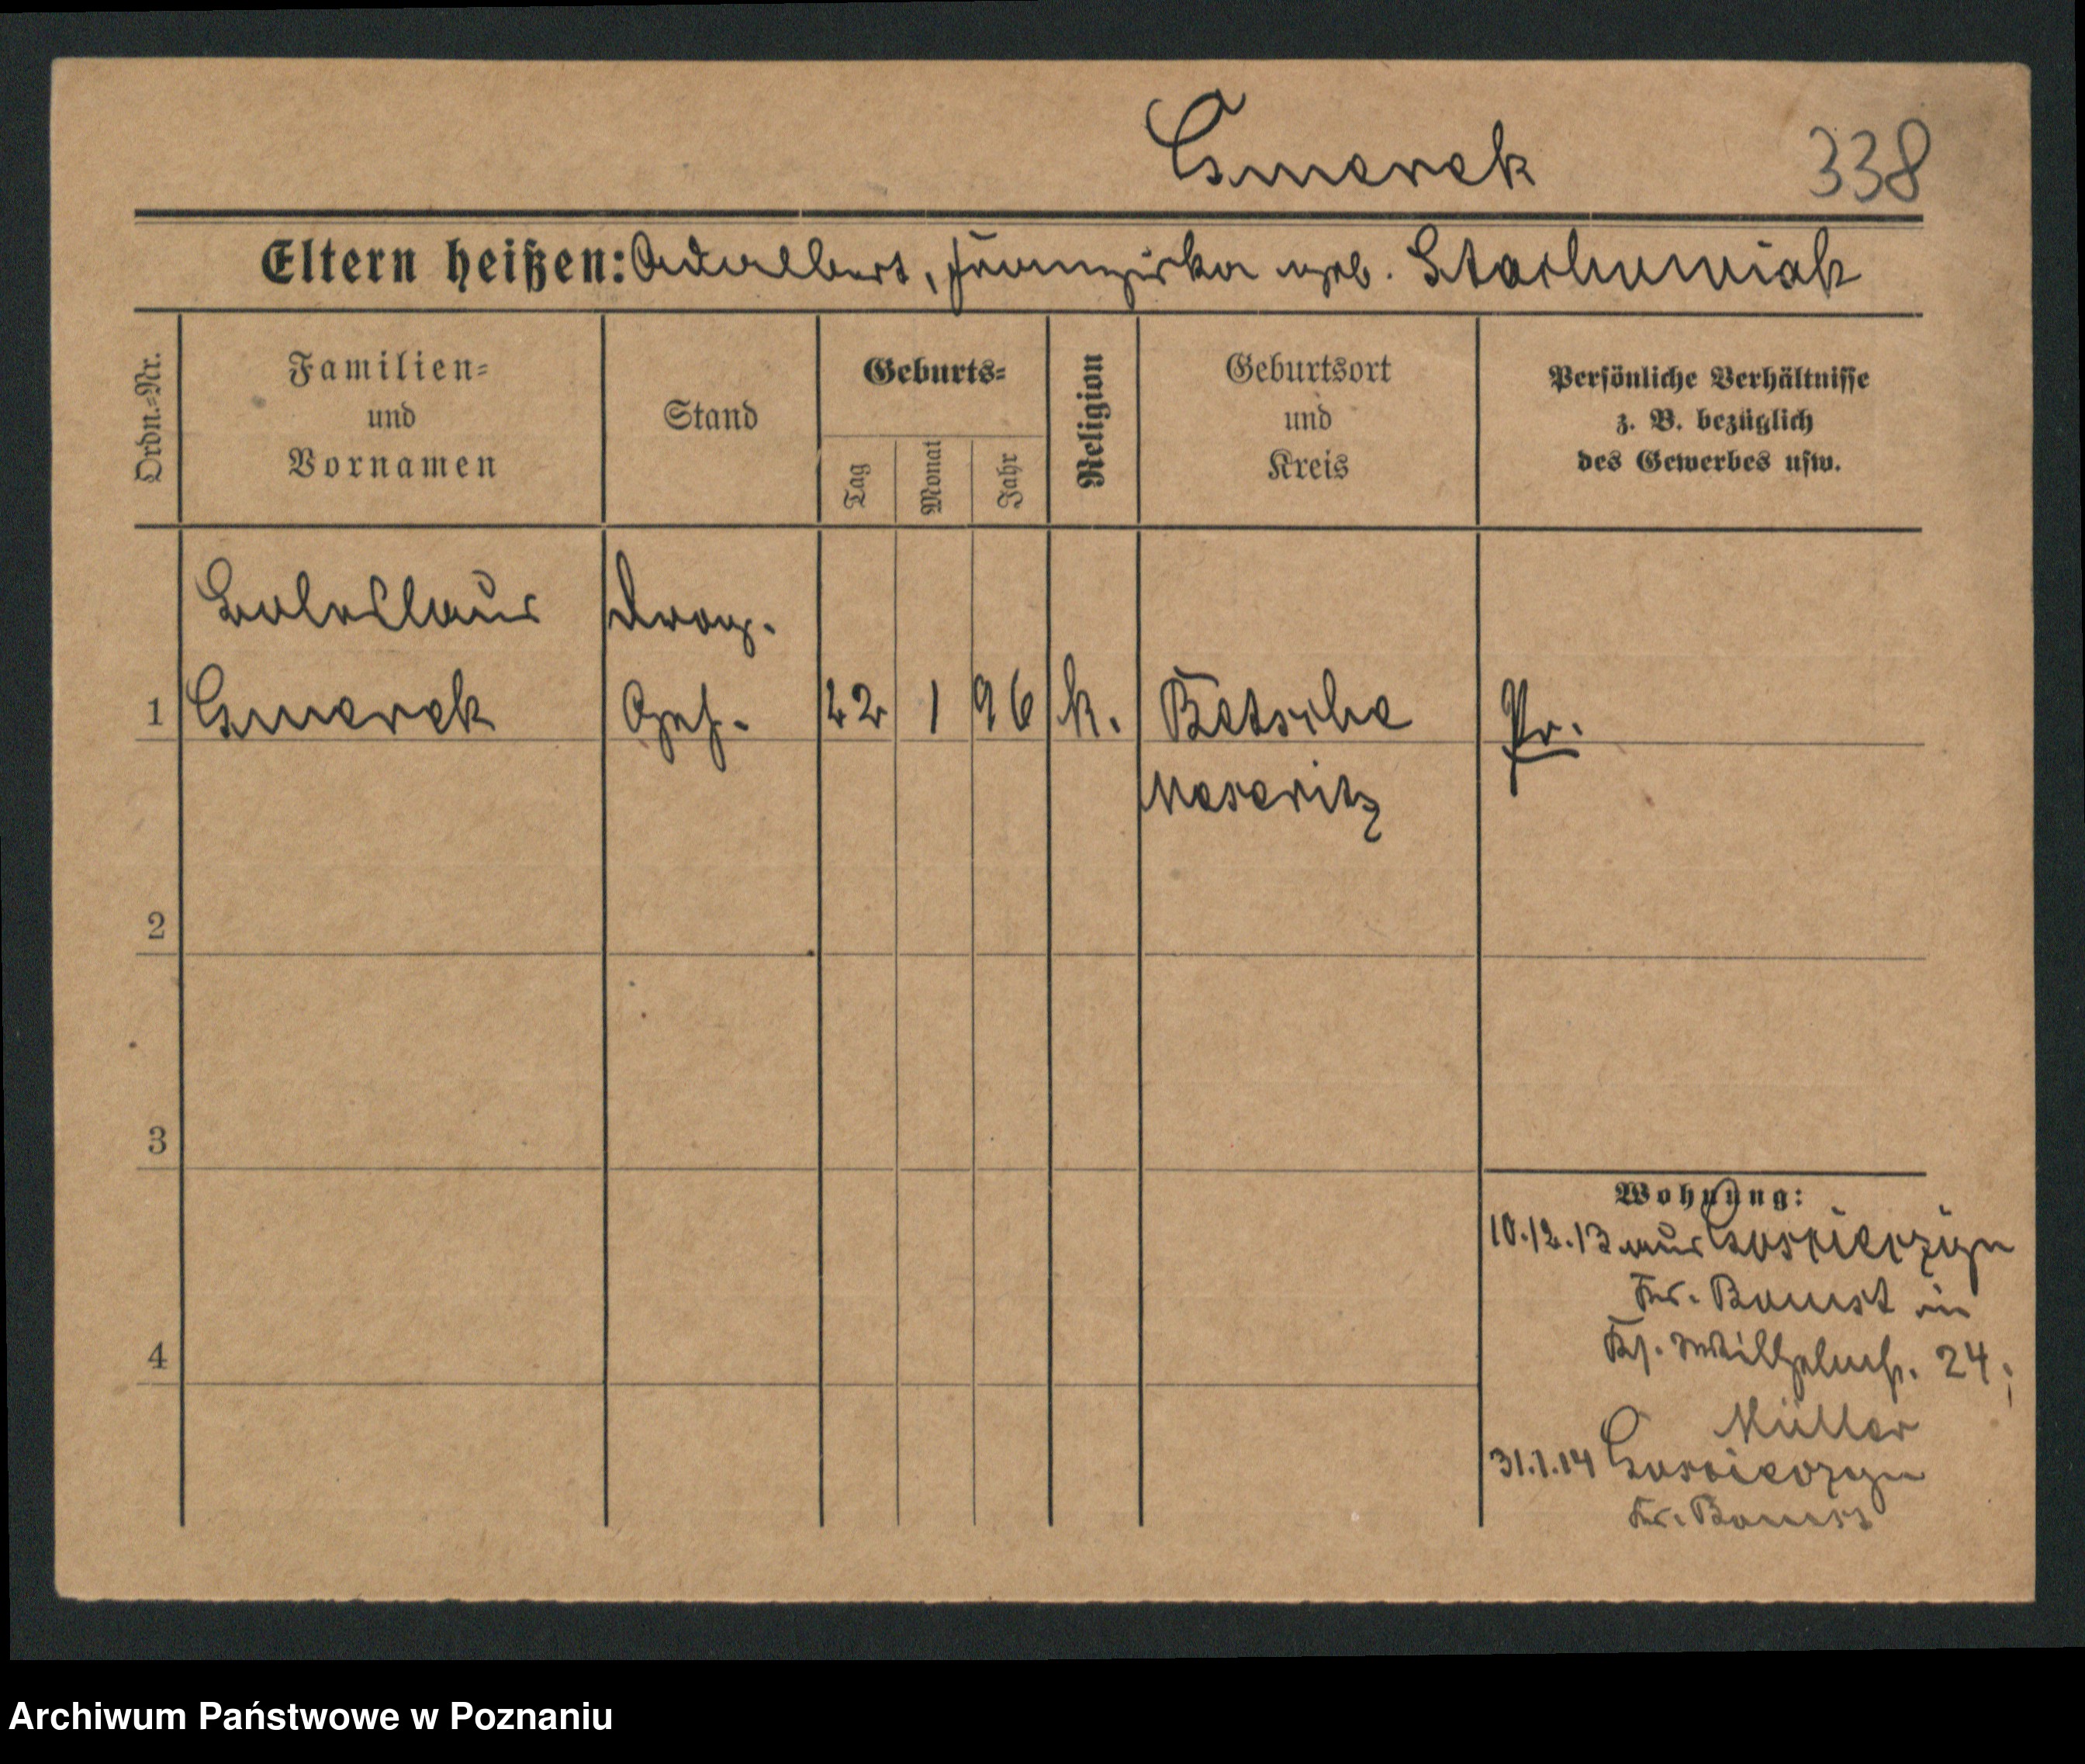 Gmerek 338
Eltern heißen: Adalbert, Franziska geb. Stachowiak
Ordn.-Nr.
Familien- und Vornamen
Stand
Geburts-
Tag
Monat
Jahr
Religion
Geburtsort und Kreis
Persönliche Verhältnisse
z. B. bezüglich
des Gewerbes usw.
Boleslaus Drog.
1 Gmerek Geh. 22 1 96 k. Betsche Pr.
Meseritz
2
3
4
Wohnung:
10.12.13 aus
Kr. Bomst in
24;
Müller
31.1.14
Kr. Bomst
Archiwum Państwowe w Poznaniu